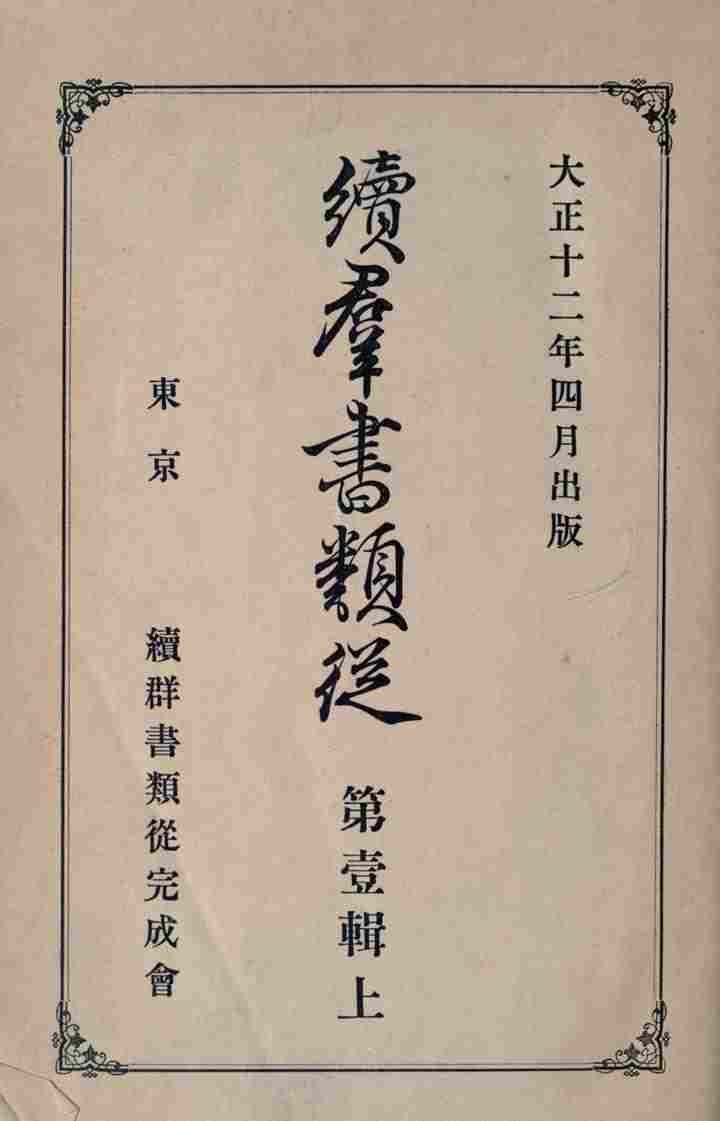 大正十二年四月出版
續羣書類從 第壹輯上
東京 續群書類從完成會